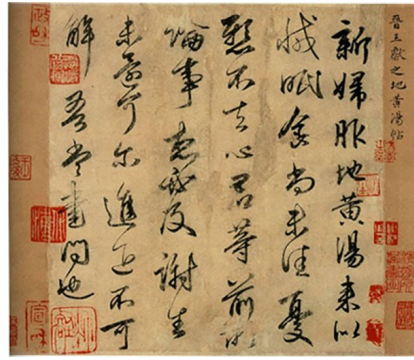 晉王獻之地黃湯帖
新婦服地黃湯来似
減眠食尚未佳憂
懸不去心君等前所
論事想必及謝生
未還可尔進退不可
解吾當書問也
宣和